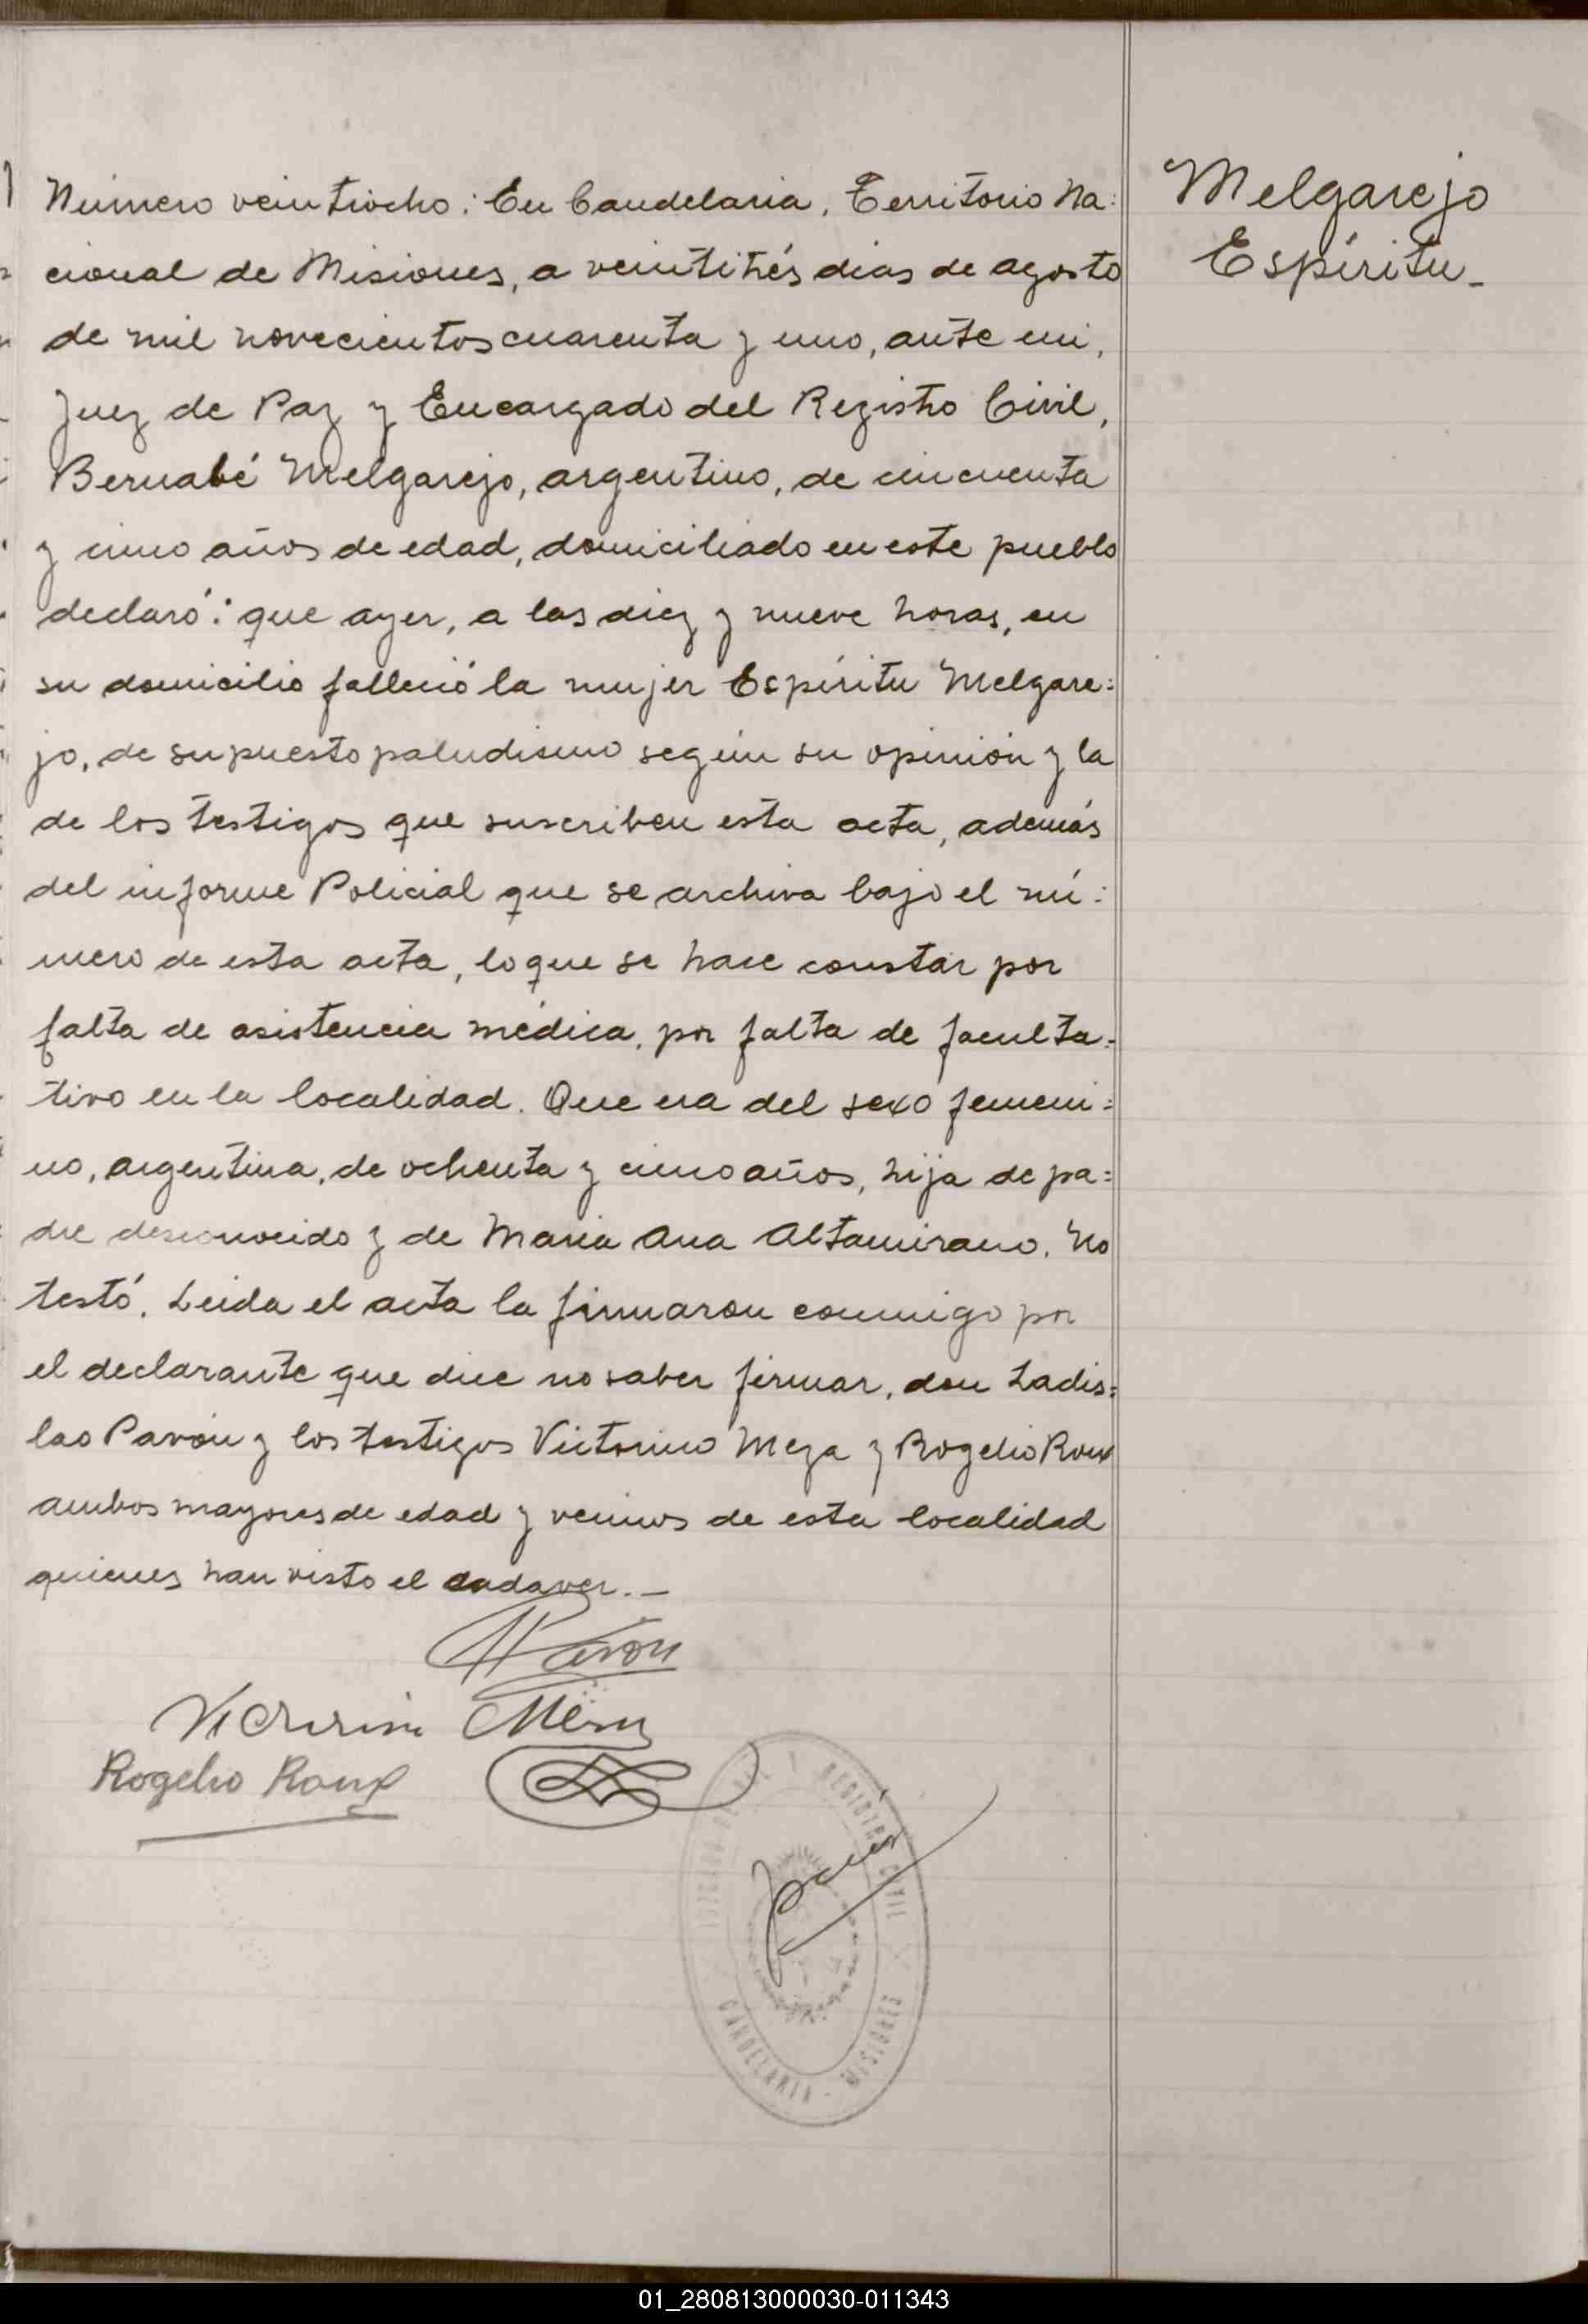 Número veintiocho: En Candelaria, Territorio Na=
cional de Misiones, a veintitrés dias de agosto
de mil novecientos cuarenta y uno, ante mi,
Juez de Paz y Encargado del Registro Civil,
Bernabé Melgarejo, argentino, de cincuenta
y cinco años de edad, domiciliado en este pueblo
declaró: que ayer, a las diez y nueve horas, en
su domicilio falleció la mujer Espíritu Melgare=
jo, de supuesto paludismo según su opinión y la
de los testigos que suscriben esta acta, además
del informe Policial que se archiva bajo el nú=
mero de esta acta, lo que se hace constar por
falta de asistencia médica, por falta de faculta=
tivo en la localidad. Que era del sexo femeni=
no, argentina, de ochenta y cinco años, hija de pa=
dre desconocido y de Maria Ana Altamirano. No
testó. Leida el acta la firmaron conmigo por
el declarante que dice no saber firmar, don Ladis=
lao Pavón y los testigos Victorino Meza y Rogelio Roux
ambos mayores de edad y vecinos de esta localidad
quienes han visto el cadaver.—
Melgarejo
Espíritu-
Pavón
Victorino Meza
Rogelio Roux
JUZGADO DE PAZ Y REGISTRO CIVIL
CANDELARIA - MISIONES
01_280813000030-011343